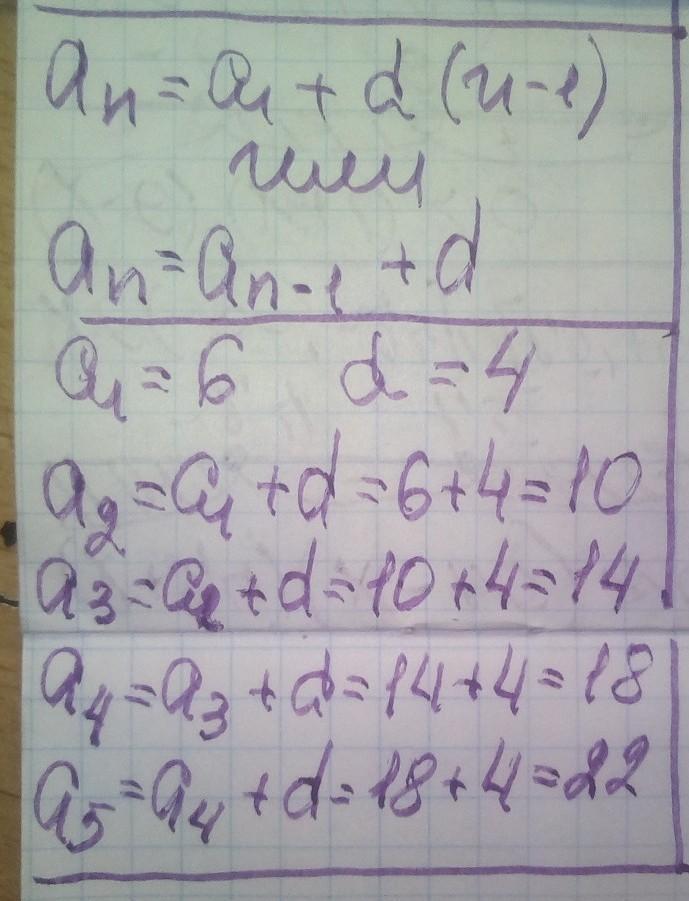 aₙ = a₁ + d (n-1)
или
aₙ = aₙ₋₁ + d
a₁ = 6 d = 4
a₂ = a₁ + d = 6+4 = 10
a₃ = a₂ + d = 10+4 = 14
a₄ = a₃ + d = 14+4 = 18
a₅ = a₄ + d = 18+4 = 22